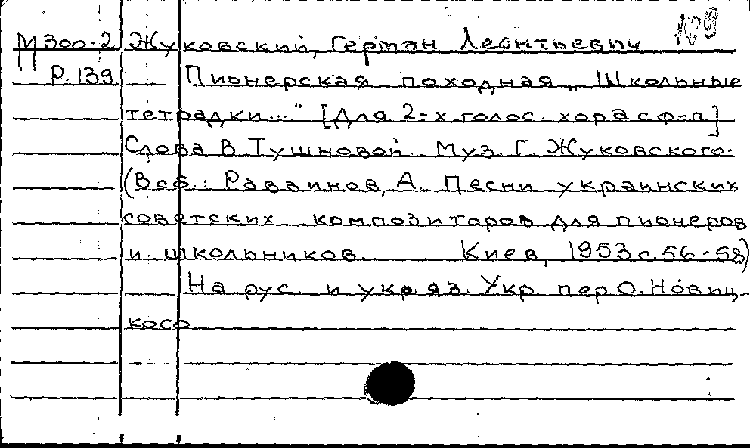 М 300-2 Жуковский, Герман Леонтьевич
Р. 139 Пионерская походная „Школьные
тетрадки..." [Для 2-х голос. хора с ф-п]
Слова В. Тушновой. Муз. Г. Жуковского.
(В сб.: Раввинов, А. Песни украинских
советских композиторов для пионеров
и школьников. Киев, 1953 с. 56-58)
На рус. и укр. яз. Укр. пер О. Новиц
кого